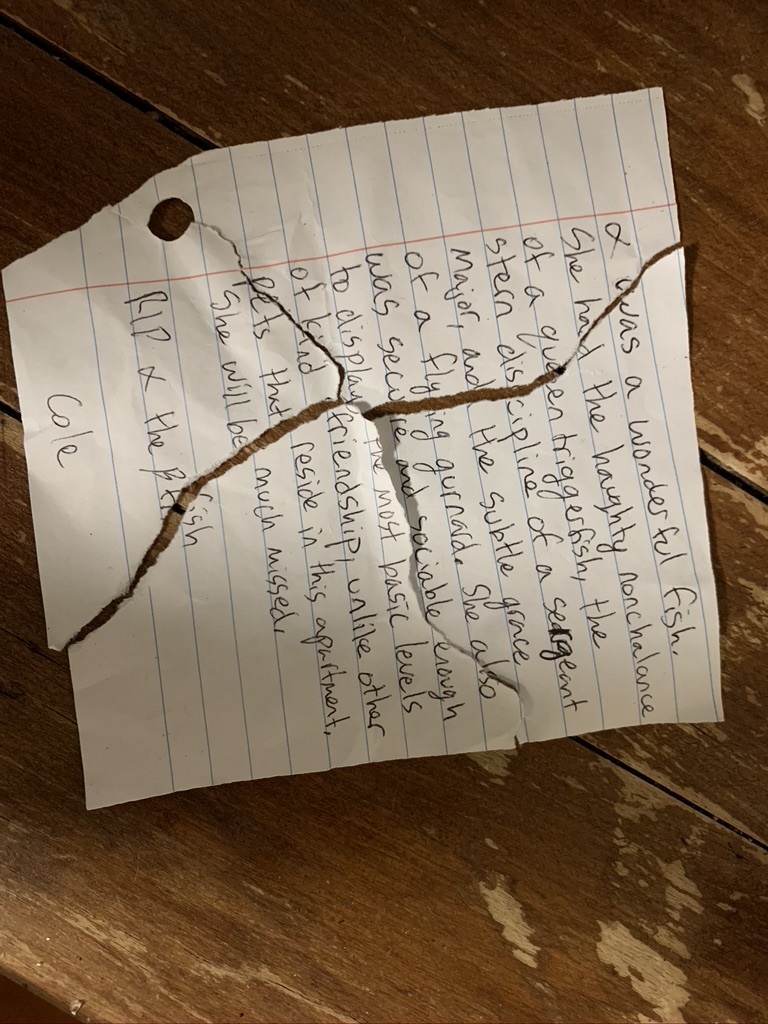 α was a wonderful fish.
She had the haughty nonchalance
of a queen triggerfish, the
stern discipline of a sergeant
major, and the subtle grace
of a flying gurnard. She also
was secure and sociable enough
to display the most basic levels
of kind friendship, unlike other
pets that reside in this apartment.
She will be much missed.
RIP α the fish
Cole